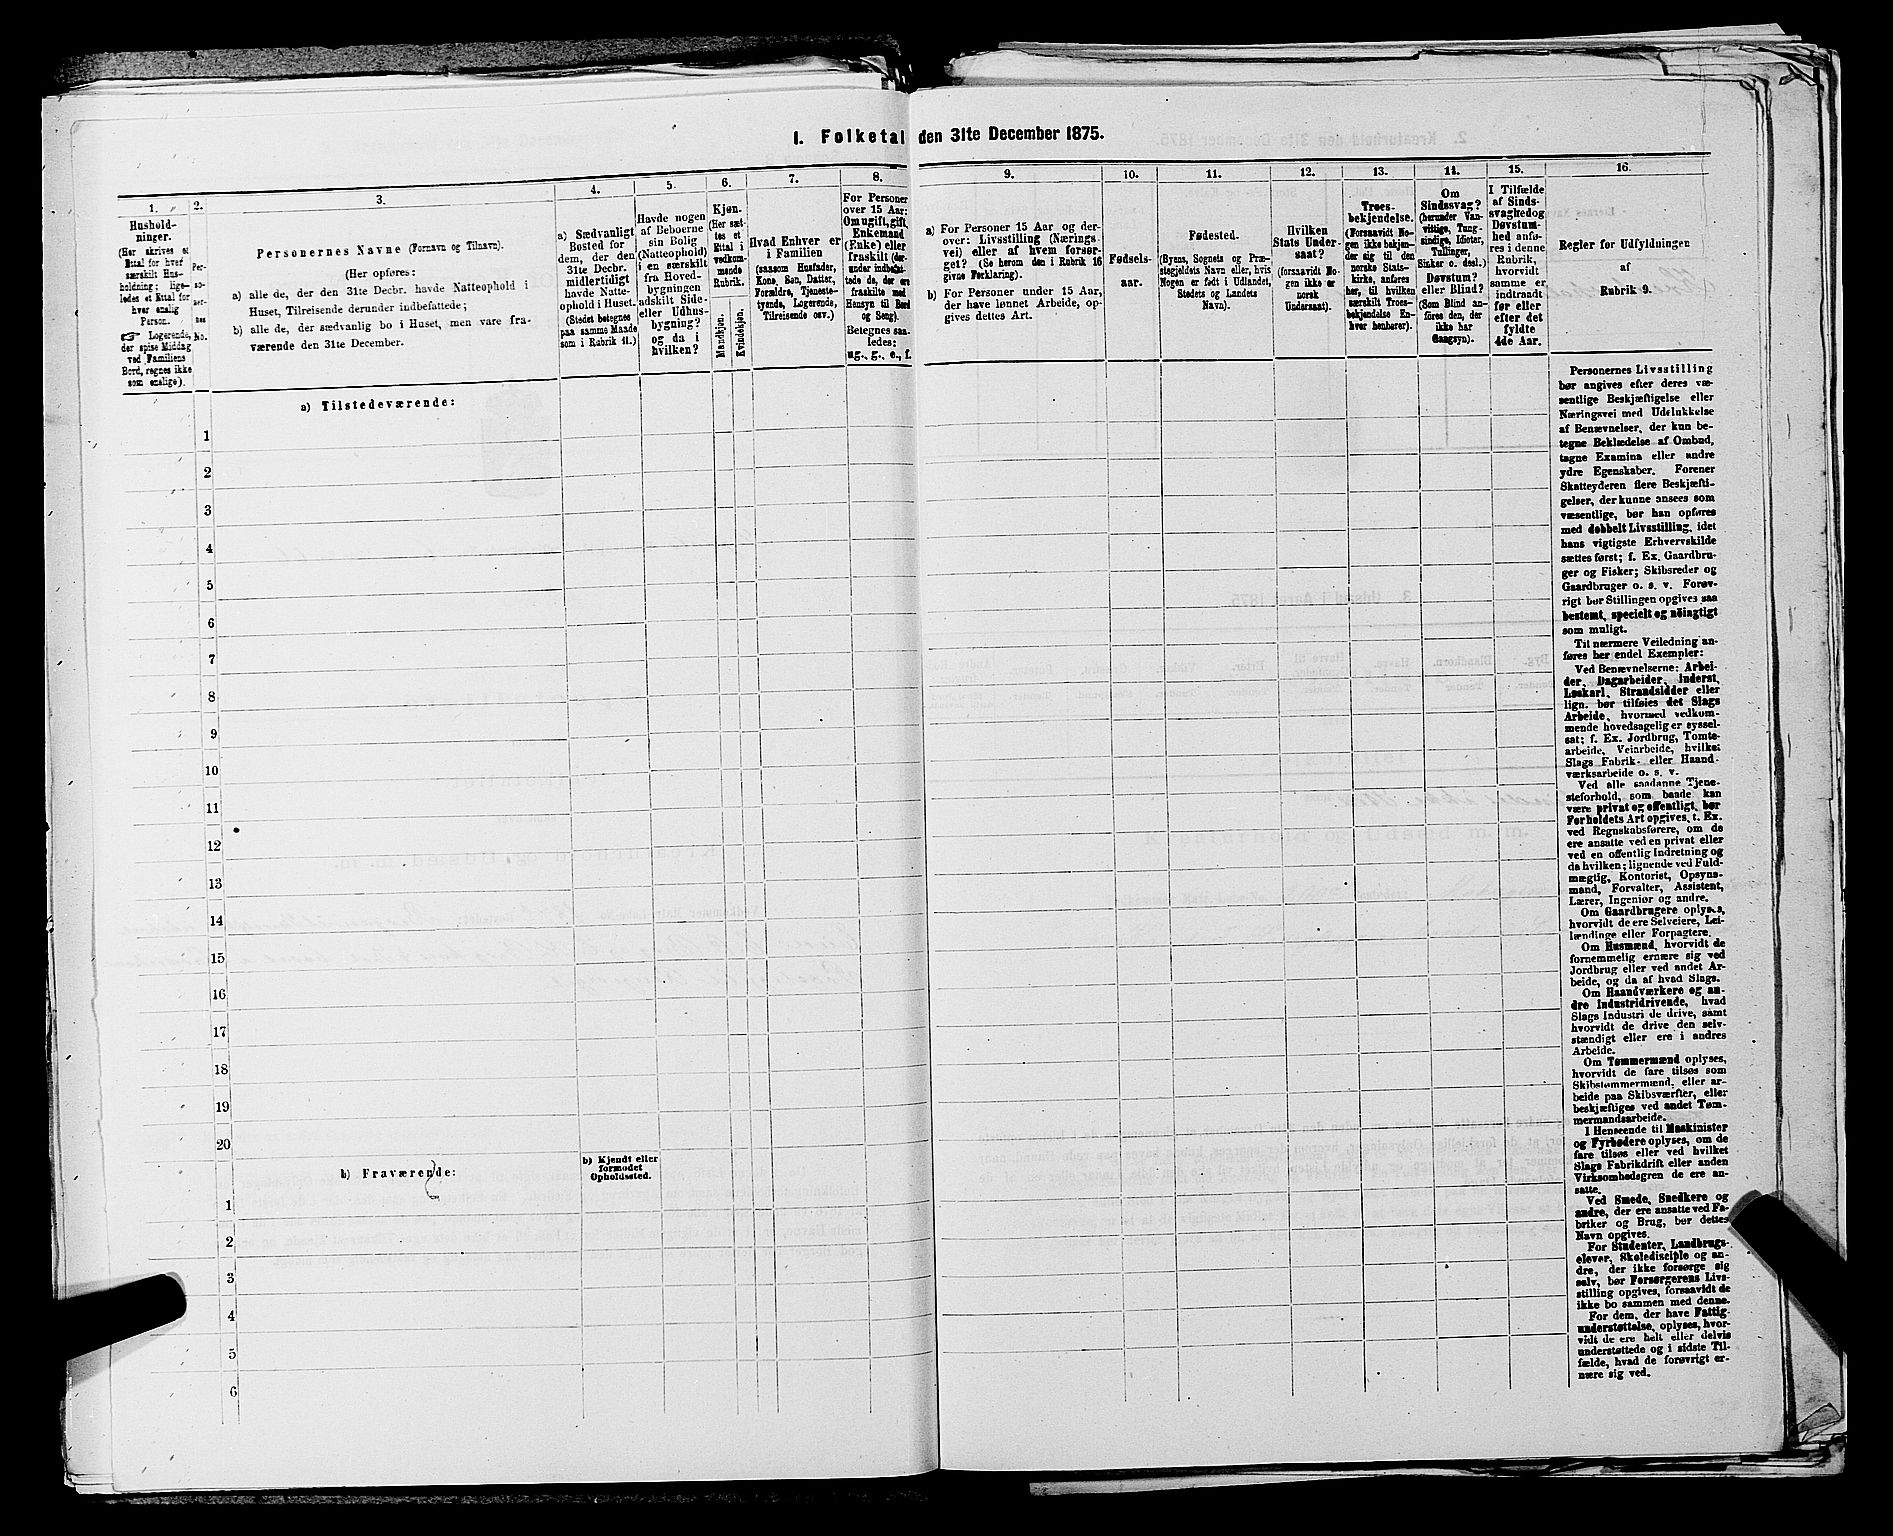 1. Folketal den 31te December 1875.
1.
Hushold-
ninger.
(Her skrives et
Ettal for hver
særskilt Hus-
holdning; lige-
ledes et Ettal for
hver enslig
Person.
Logerende,
der spise Middag
ved Familiens
Bord, regnes ikke
som enslige).
2.
Per-
so-
ner-
nes
No.
3.
Personernes Navne (Fornavn og Tilnavn).
(Her opføres:
a) alle de, der den 31te Decbr. havde Natteophold i
Huset, Tilreisende derunder indbefattede;
b) alle de, der sædvanlig bo i Huset, men vare fra-
værende den 31te December.
4.
a) Sædvanligt
Bosted for
dem, der den
31te Decbr.
midlertidigt
havde Natte-
ophold i Huset.
(Stedet betegnes
paa samme Maade
som i Rubrik 11.)
5.
Havde nogen
af Beboerne
sin Bolig
(Natteophold)
i en særskilt
fra Hoved-
bygningen
adskilt Side-
eller Udhus-
bygning?
og da i
hvilken?
6.
Kjøn.
(Her sæt-
tes et
Ettal i
vedkom-
mende
Rubrik.
Mandkjøn.
Kvindekjøn.
7.
Hvad Enhver er
i Familien
(saasom Husfader,
Kone, Søn, Datter,
Forældre, Tjeneste-
tyende, Logerende,
Tilreisende osv.)
8.
For Personer
over 15 Aar:
Om ugift, gift,
Enkemand
(Enke) eller
fraskilt (der-
under indbefat-
tede de, der ere
fraskilte med
Hensyn til Bord
og Seng).
Betegnes saa-
ledes:
ug., g., e., f.
9.
a) For Personer 15 Aar og der-
over: Livsstilling (Nærings-
vei) eller af hvem forsør-
get? (Se herom den i Rubrik 16
givne Forklaring).
b) For Personer under 15 Aar,
der have lønnet Arbeide, op-
gives dettes Art.
10.
Fødsels-
aar.
11.
Fødested.
(Byens, Sognets og Præ-
stegjeldets Navn eller, hvis
Nogen er født i Udlandet,
Stedets og Landets
Navn).
12.
Hvilken
Stats Under-
saat?
(forsaavidt No-
gen ikke er
norsk
Undersaat).
13.
Troes-
bekjendelse.
(Forsaavidt No-
gen ikke bekjen-
der sig til den
norske Stats-
kirke, anføres
her, til hvilken
særskilt Troes-
bekjendelse En-
hver henhører).
14.
Om
Sindssvag?
(herunder Van-
vittige, Tung-
sindige, Idioter,
Tullinger,
Sinker o. desl.)
Døvstum?
eller Blind?
(Som Blind an-
føres den, der
ikke har
Gangsyn).
15.
I Tilfælde
af Sinds-
svaghed og
Døvstum-
hed anfø-
res i denne
Rubrik,
hvorvidt
samme er
indtraadt
før eller
efter det
fyldte
4de Aar.
16.
Regler for Udfyldningen
af
Rubrik 9.
a) Tilstedeværende:
1
2
3
4
5
6
7
8
9
10
11
12
13
14
15
16
17
18
19
20
b) Fraværende:
b) Kjendt eller
formodet
Opholdssted.
1
2
3
4
5
6
Personernes Livsstilling
bør angives efter deres væ-
sentlige Beskjæftigelse eller
Næringsvei med Udelukkelse
af Benævnelser, der kun be-
tegne Beklædelse af Ombud,
tagne Examina eller andre
ydre Egenskaber. Forener
Skatteyderen flere Beskjæfti-
gelser, der kunne ansees som
væsentlige, bør han opføres
med dobbelt Livsstilling, idet
hans vigtigste Erhvervskilde
sættes først; f. Ex. Gaardbru-
ger og Fisker; Skibsreder og
Gaardbruger o. s. v. Forøv-
rigt bør Stillingen opgives saa
bestemt, specielt og nøiagtigt
som muligt.
Til nærmere Veiledning an-
føres her endel Exempler:
Ved Benævnelserne: Arbei-
der, Dagarbeider, Inderst,
Løskarl, Strandsidder eller
lign. bør tilføies det Slags
Arbeide, hvormed vedkom-
mende hovedsagelig er syssel-
sat; f. Ex. Jordbrug, Tomte-
arbeide, Veiarbeide, hvilket
Slags Fabrik- eller Haand-
værksarbeide o. s. v.
Ved alle saadanne Tjene-
steforhold, som baade kan
være privat og offentligt, bør
Forholdets Art opgives, t. Ex.
ved Regnskabsførere, om de
ere ansatte ved en privat eller
ved en offentlig Indretning og
da hvilken; lignende ved Fuld-
mægtig, Kontorist, Opsyns-
mand, Forvalter, Assistent,
Lærer, Ingeniør og andre.
Om Gaardbrugere oplyses,
hvorvidt de ere Selveiere, Lei-
lændinge eller Forpagtere.
Om Husmænd, hvorvidt de
fornemmelig ernære sig ved
Jordbrug eller ved andet Ar-
beide, og da af hvad Slags.
Om Haandværkere og an-
dre Industridrivende, hvad
Slags Industri de drive, samt
hvorvidt de drive den selv-
stændigt eller ere i andres
Arbeide.
Om Tømmermænd oplyses,
hvorvidt de fare tilsøs som
Skibstømmermænd, eller ar-
beide paa Skibsværfter, eller
beskjæftiges ved andet Tøm-
mermandsarbeide.
I Henseende til Maskinister
og Fyrbødere oplyses, om de
fare tilsøs eller ved hvilket
Slags Fabrikdrift eller anden
Virksomhedsgren de ere an-
satte.
Ved Smede, Snedkere og
andre, der ere ansatte ved Fa-
briker og Brug, bør dettes
Navn opgives.
For Studenter, Landbrugs-
elever, Skoledisciple og an-
dre, der ikke forsørge sig
selv, bør Forsørgerens Livs-
stilling opgives, forsaavidt de
ikke bo sammen med denne.
For dem, der have Fattig-
understøttelse, oplyses, hvor-
vidt de ere helt eller delvis
understøttede og i sidste Til-
fælde, hvad de forøvrigt er-
nære sig ved.